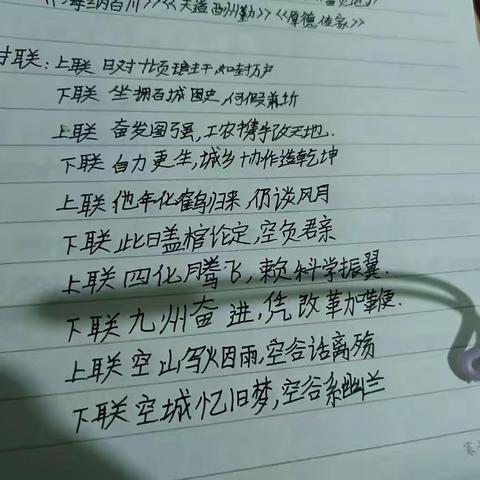 《海纳百川》>><<天道酬勤>> <<厚德传家>>
对联:上联 日对千顷琅玕
下联 坐拥百城图史,何假南圻
上联 奋发图强,工农携手改天地.
下联 自力更生,城乡协作造乾坤
上联 他年化鹤归来,仍谈风月
下联 此日盖棺论定,空负君亲
上联 四化腾飞,赖科学振翼.
下联 九州奋进,凭改革加鞭.
上联 空山写烟雨,空谷话离殇
下联 空城忆旧梦,空谷系幽兰